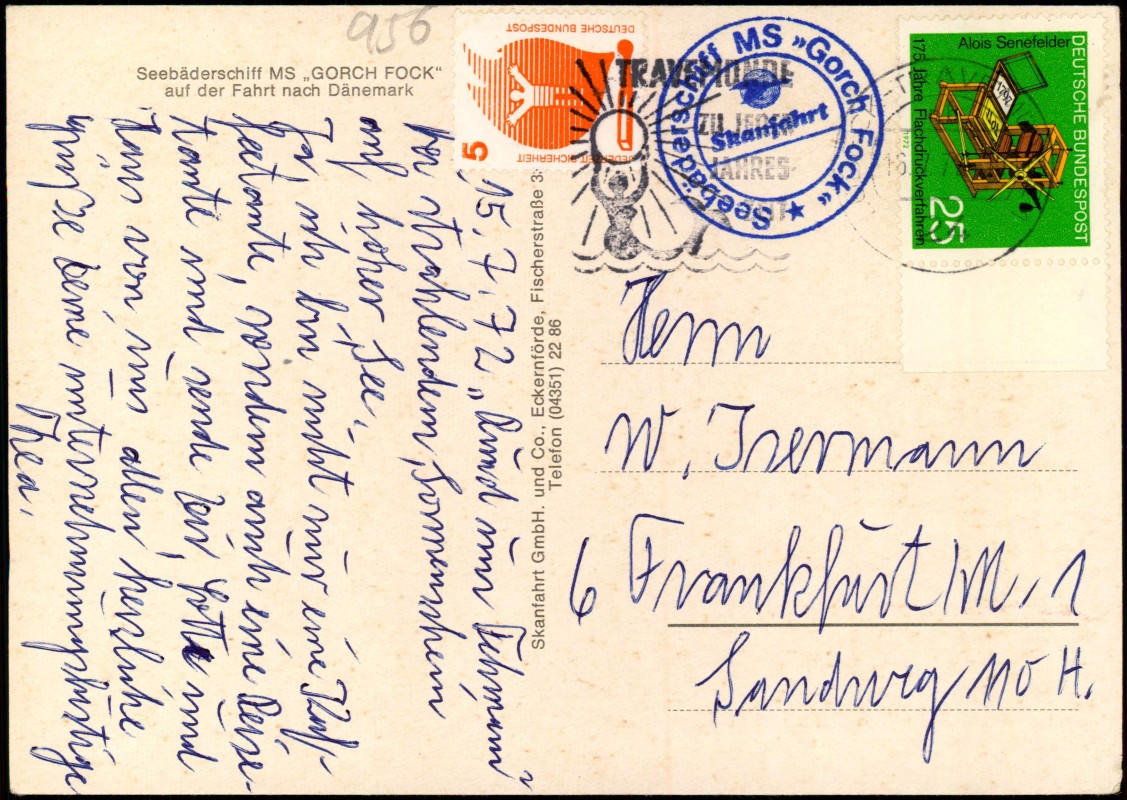 956
Seebäderschiff MS „GORCH FOCK“
auf der Fahrt nach Dänemark
15.7.72 „Rund um Fehmarn“
bei strahlendem Sonnenschein
auf hoher See.
Ja, ich bin nicht nur eine Kaf-
feetante, sondern auch eine Reise-
tante und sende Dir, Lotte und
von uns allen herzliche
Grüße Deine unternehmungslustige
Thea.
Skanfahrt GmbH. und Co., Eckernförde, Fischerstraße 3
Telefon (04351) 22 86
DEUTSCHE BUNDESPOST
JEDERZEIT SICHERHEIT
5
TRAVEMÜNDE
ZU JEDER
JAHRES-
Seebäderschiff MS »Gorch Fock«
Skanfahrt
16.7.7
Alois Senefelder
175 Jahre Flachdruckverfahren
1972
1797
DEUTSCHE BUNDESPOST
25
Herrn
W. Isermann
6 Frankfurt/M. 1
Sandweg 110 H.